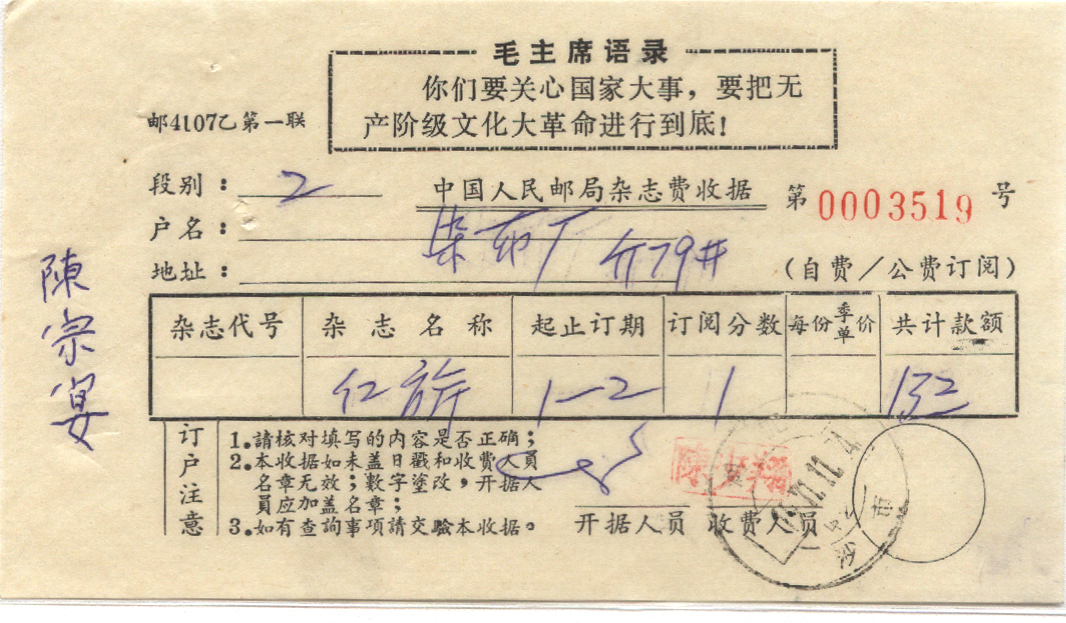 毛主席语录
你们要关心国家大事，要把无
产阶级文化大革命进行到底！
邮4107乙第一联
段别：2
中国人民邮局杂志费收据
第0003519号
户名：
地址：
(自费／公费订阅)
陳宗宴
杂志代号 杂志名称 起止订期 订阅分数 每份季单价 共计款额
红旂 1—2 1 132
订户注意
1.請核对填写的内容是否正确；
2.本收据如未盖日戳和收费人员
名章无效；数字塗改，开据人
員应加盖名章；
3.如有查詢事項請交驗本收据。
开据人员 收费人员
沙市